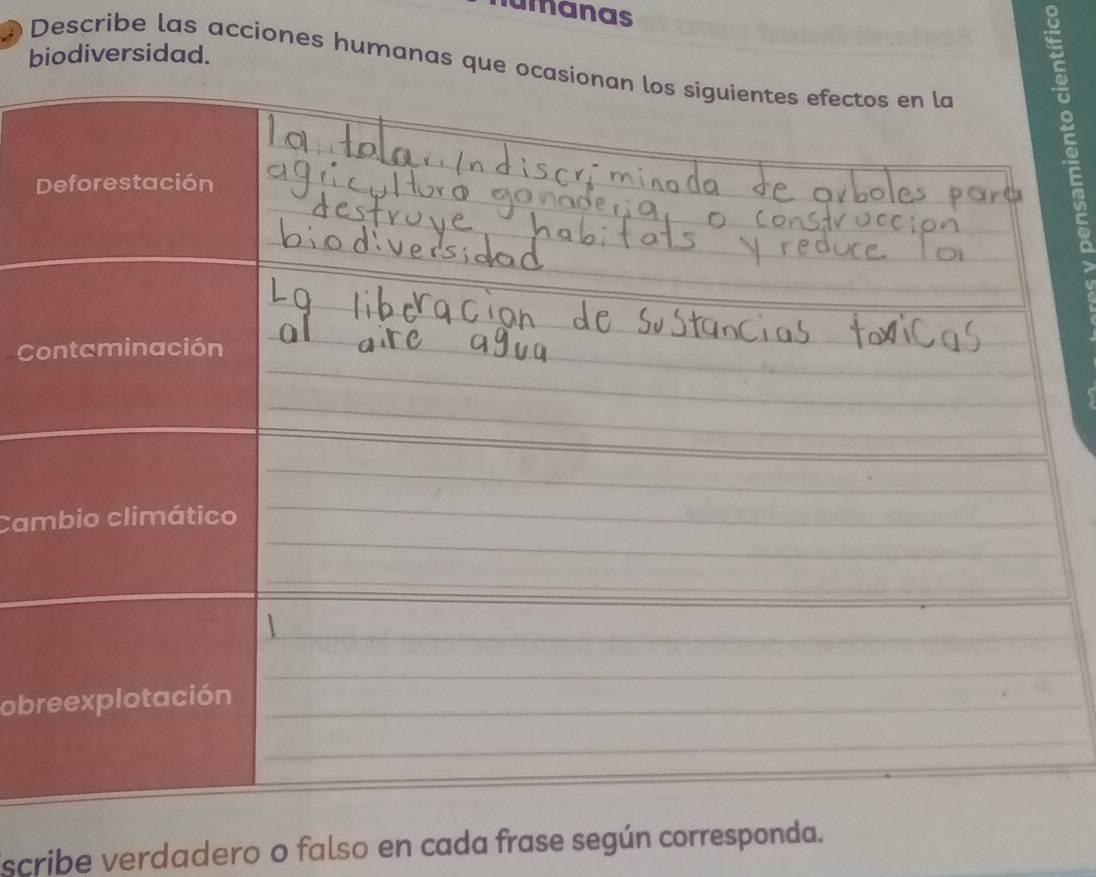 umanas
Describe las acciones humanas que ocasionan los siguientes efectos en la
biodiversidad.
Deforestación
la tolar. Indiscriminada de arboles para
agricultura ganaderia, o construccion
destruye habitats y reduce la
biodiversidad
Contaminación
La liberacion de sustancias toxicas
al aire agua
Cambio climático
obreexplotación
scribe verdadero o falso en cada frase según corresponda.
y pensamiento científico